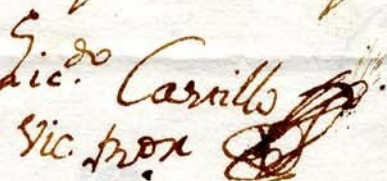 Lic.do Carrillo
Vic. Pror